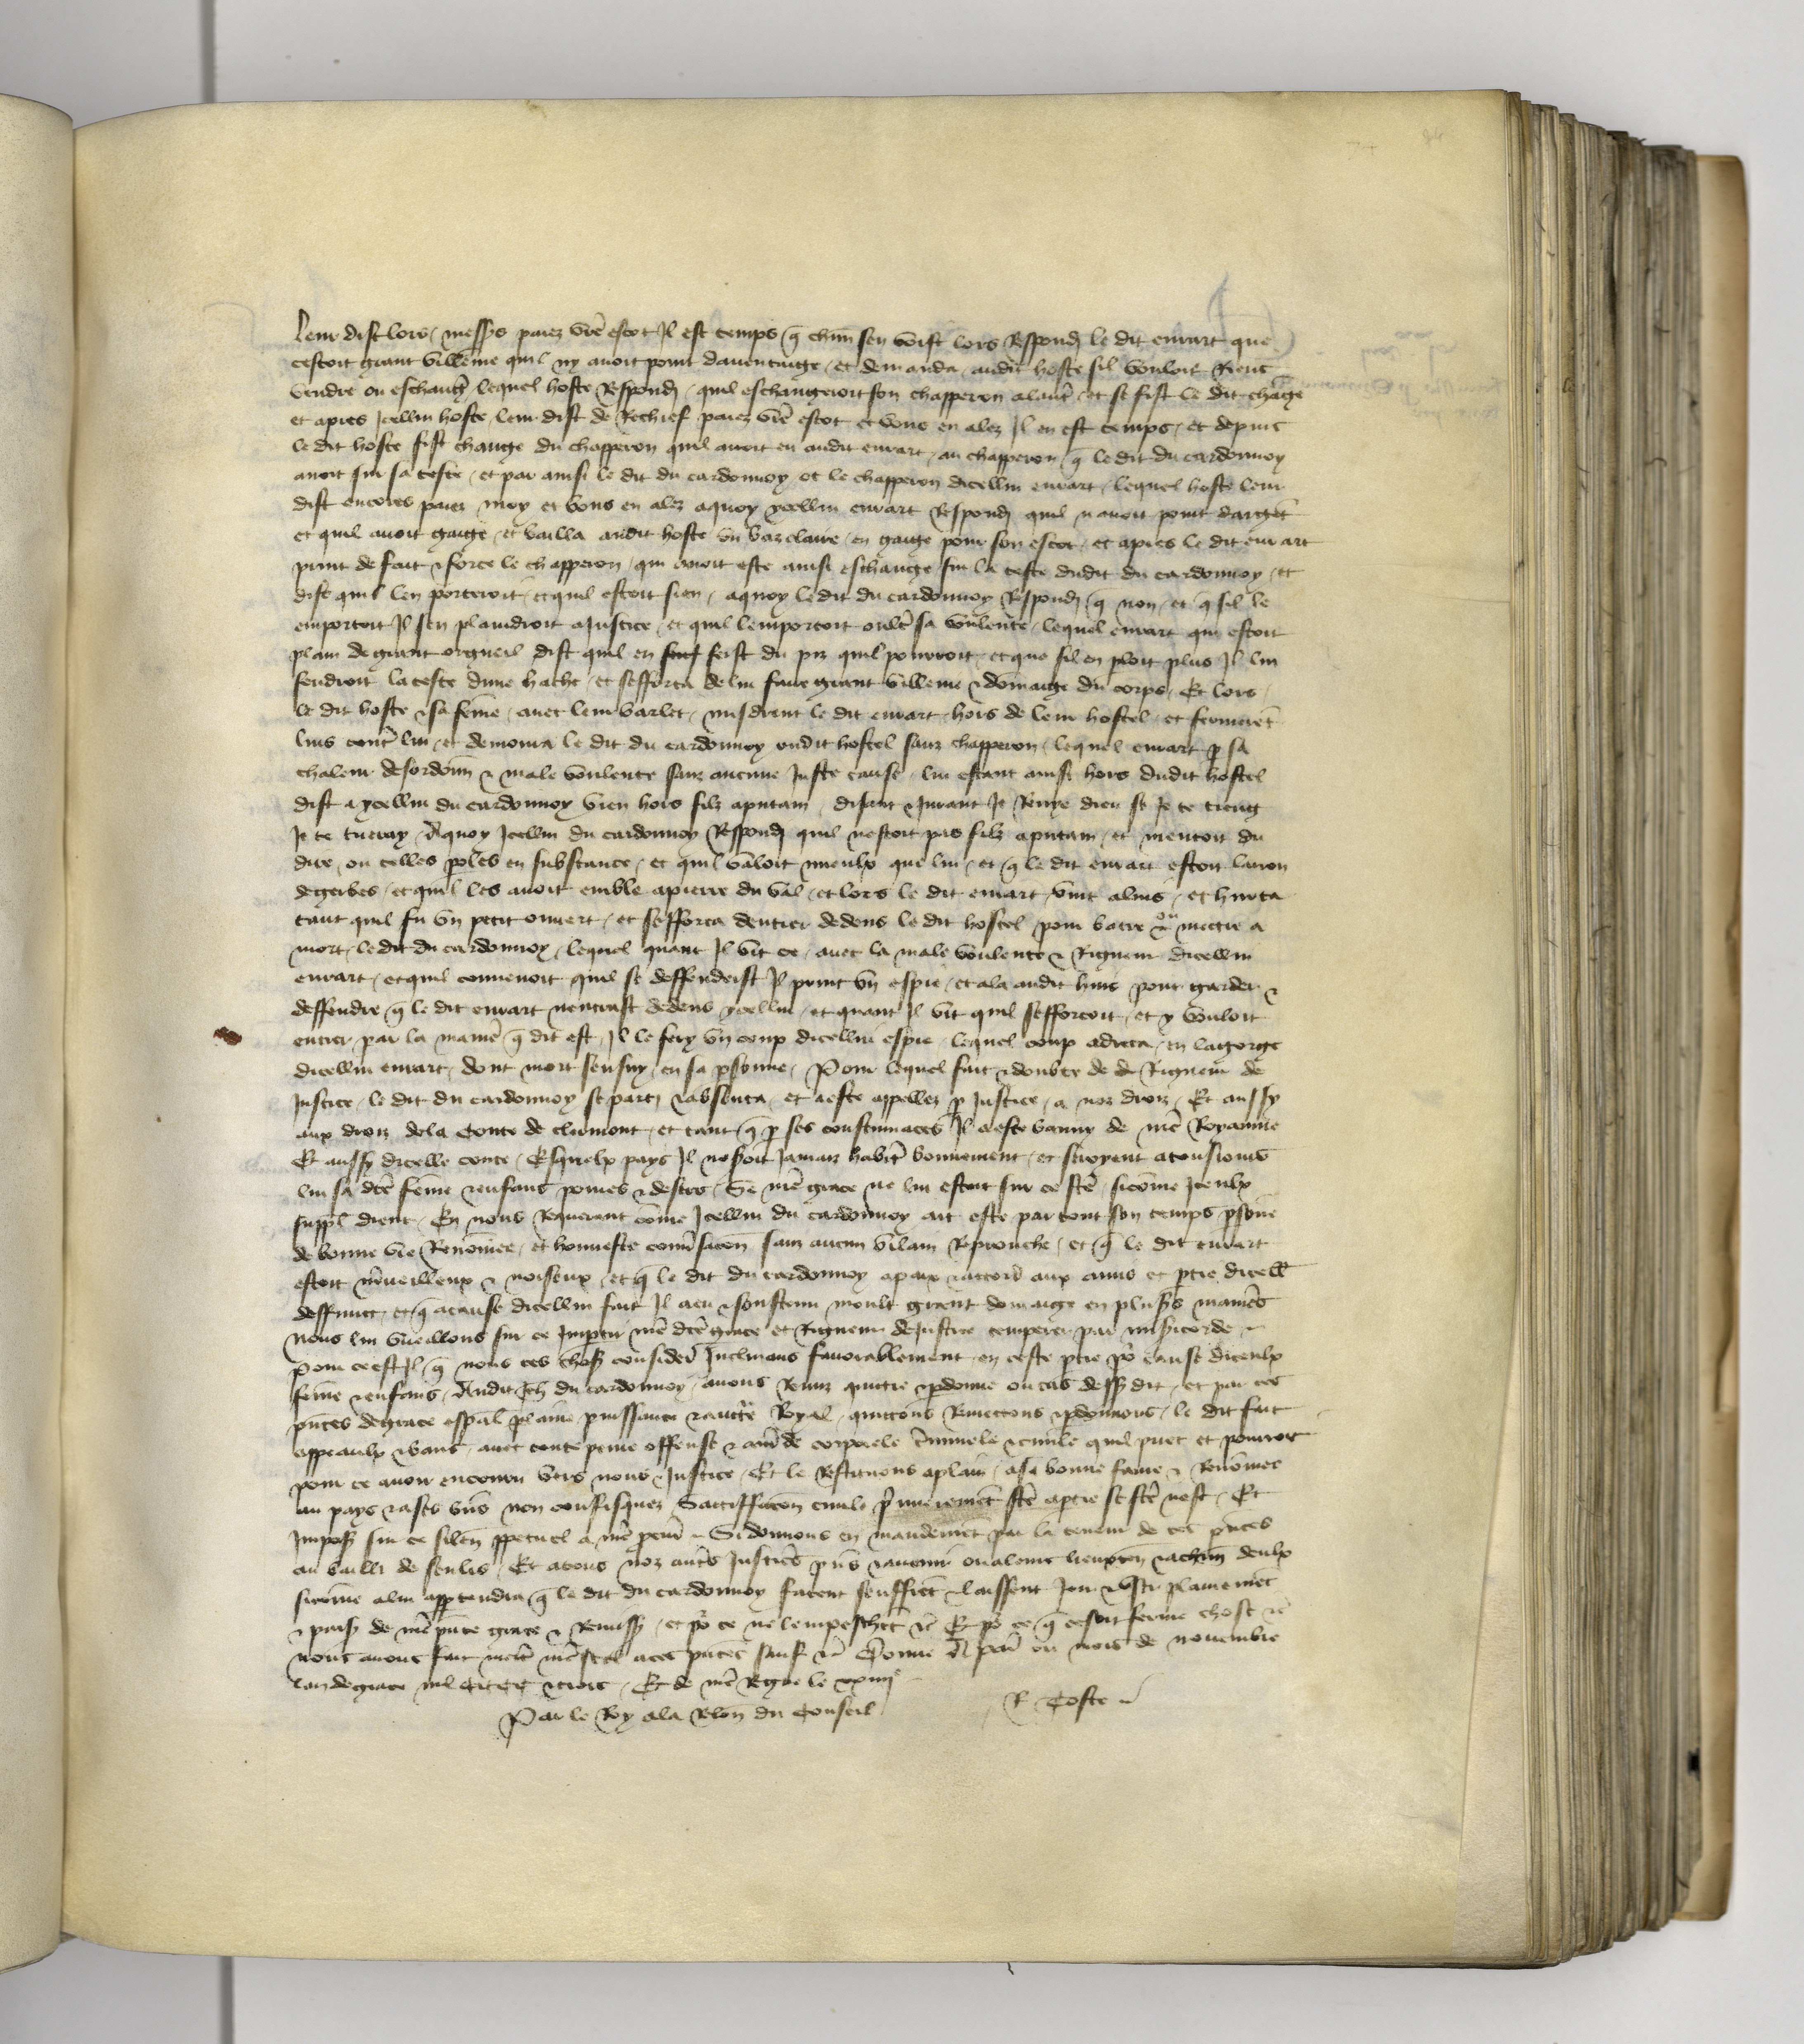 leur dist lors messrs paiez vre escot Il est temps q chun sen voist lors Respondi le dit enuart que
cestoit grant villenie quil ny auoit point dauentaige et demanda audit hoste sil vouloit Riens
vendre ou eschangr lequel hoste Respondi quil eschangeroit son chapperon alautr et se fist le dit change
et apres Icellui hoste leur dist de Rechief paiez vre escot et vous en alez Il en est temps et depuis
le dit hoste fist change du chapperon quil auoit eu audit enuart au chapperon q le dit du cardonnoy
auoit sur sa teste et par ainsi le dit du cardonnoy ot le chapperon dicellui enuart lequel hoste leur
dist encores paiez moy et vous en alez aquoy ycellui enuart Respondi quil nauoit point dargent
et quil auoit gaige et bailla audit hoste un bazelaire en gaige pour son escot et apres le dit enuart
print de fait & force le chapperon qui auoit este ainsi eschange sur la teste dudit du cardonnoy et
dist quil len porteroit et quil estoit sien aquoy ledit du cardonnoy Respondi q non et q sil le
emportoit Il sen plaindroit a Justice et quil lemportoit oultr sa voulente lequel enuart qui estoit
plain de grant orgueil dist quil en feist du piz quil pourroit et que sil en ploit plus Il lui
fendroit la teste dune hache et sefforca de lui faire grant villenie & dommaige du corps Et lors
le dit hoste & sa feme auec leur varlet misdrent le dit enuart hors de leur hostel et fermeret
luis contr lui et demoura le dit du cardonnoy oudit hostel sanz chapperon lequel enuart p sa
chaleur desordonn & male voulente sanz aucune Juste cause lui estant ainsi hors dudit hostel
dist a ycellui du cardonnoy vien hors filz aputain disant & Jurant Je Renye dieu se Je te tieng
Je te tueray Aquoy Icellui du cardonnoy Respondi quil nestoit pas filz aputain et mentoit du
dire ou telles ples en substance et quil valoit mieulx que lui et q le dit enuart estoit larron
de gerbes et quil les auoit emble apierre du val et lors le dit enuart vint aluis et hurta
tant quil fu un petit ouuert et sefforca dentrer dedens le dit hostel pour batre ou mettre a
mort le dit du cardonnoy lequel quant Il vit ce auec la male voulente & Rigueur dicellui
enuart et quil conuenoit quil se deffendeist Il print un espie et ala audit huis pour garder &
deffendre q le dit enuart nentrast dedens ycellui et quant Il vit quil sefforcoit et y vouloit
entrer par la manie q dit est Il le fery un coup dicellui espie lequel coup adreca en la gorge
dicellui enuart dont mort sensuy en sa psonne Pour lequel fait & doubte de Rigueur de
Justice le dit du cardonnoy se parti & absenta et a este appellez p Justice a noz droiz Et aussy
aux droiz dela Conte de clermont et tant q p ses contumaces Il a este banny de nre Royaume
Et aussy dicelle conte Esquelx pays Il noseroit Jamaiz habitr bonnement et seroyent atousiours
lui sa dce feme & enfans poures & desers Se nre grace ne lui estoit sur ce fte sicome Iceulx
suppl dient En nous Requerant come Icellui du cardonnoy ait este par tout son temps psone
de bonne vie Renomee et honneste conusacon sanz aucun vilain Reprouche et q le dit enuart
estoit mueilleux & noiseux et q le dit du cardonnoy a paix & accord aux amis et ptie dicell
deffunct et q acause dicellui fait Il a eu & soustenu moult grant domaige en plusrs manies
nous lui vueillons sur ce Impartir nre dce grace et Rigueur de Justice temperer par misicorde
Pour ce est Il q nous ces choses consider Inclinans fauorablement en ceste ptie po cause diceulx
feme & enfans Audit Jeh du cardonnoy auons Remz quitte & pdonne ou cas dessusdit et par ces
pntes de grace espal plaine puissance & auctte Royal quittons Remettons & pdonnons le dit fait
appeaulx & bans auec toute peine offense & amde corporele criminele & ciuile quil puet et pourroit
pour ce auoir encouru vers nous & Justice Et le Restituons aplain asa bonne fame & Renomee
au pays & ases biens non confisquez Satisffacon ciuile pmierement fte aptie se fte nest Et
Imposs sur ce silen ppetuel a nre pcur Si donnons en mandement par la teneur de ces pntes
au bailli de senlis Et atous noz autrs Justiciers pns & auenir ou aleurs lieuxten & achun deulx
sicome alui apptendra q le dit du cardonnoy facent seuffret & laissent Joir & vser plainemet
& paisib de nre pnte grace & Remiss et po ce ne lempeschet &c Et po ce q ce soit ferme chose &c
nous auons fait mettr nre scel aces pntes sauf &c Donne A paris ou mois de nouembre
lan de grace mil CCCC & trois Et de nre Regne le xxiiiie
Par le Roy ala Relon du Conseil R Coste